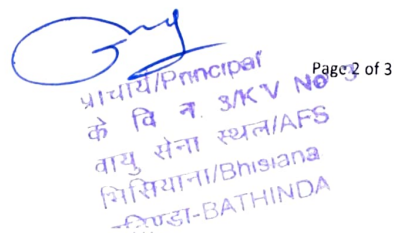 Page 2 of 3
प्राचार्य/Principal
के वि न. 3/K V No 3
वायु सेना स्थल/AFS
भिसियाना/Bhisiana
-BATHINDA